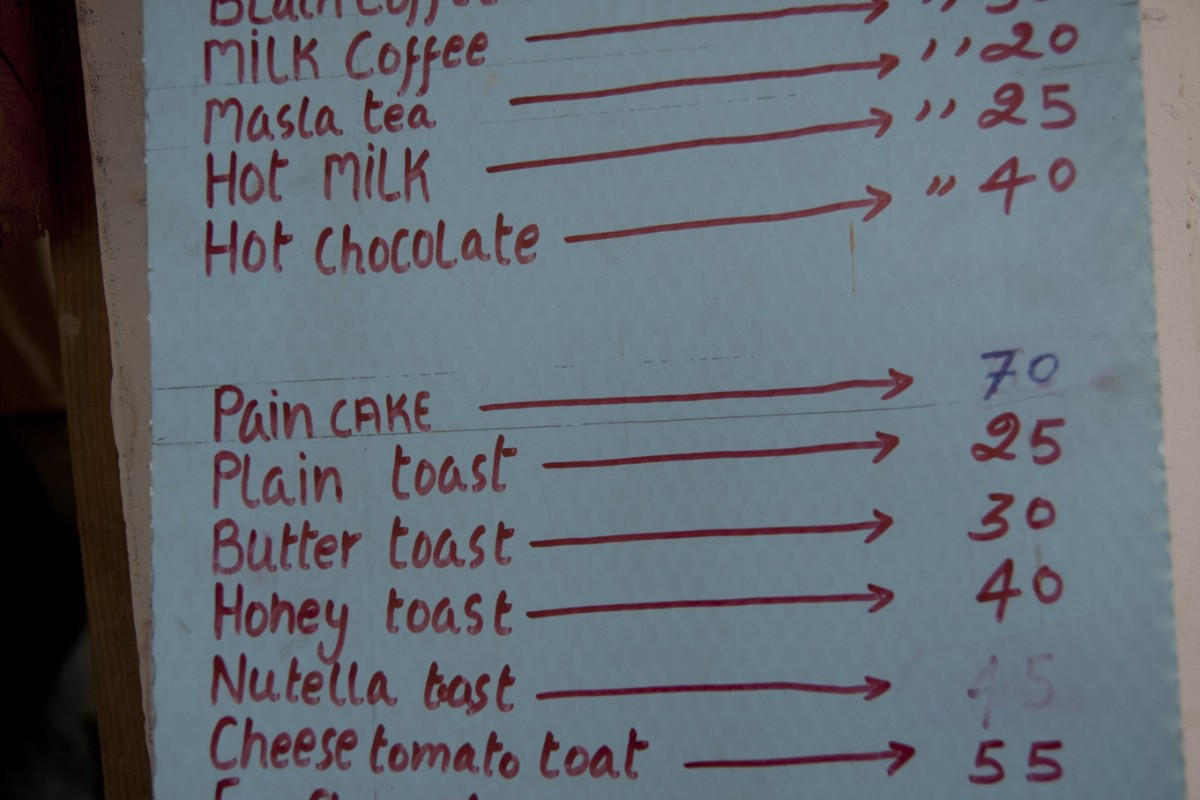 MiLK Coffee → ,, 30
Masla tea → ,, 20
Hot MiLK → ,, 25
Hot chocolate → ,, 40
Pain CAKE → 70
Plain toast → 25
Butter toast → 30
Honey toast → 40
Nutella toast → 45
Cheese tomato toat → 55